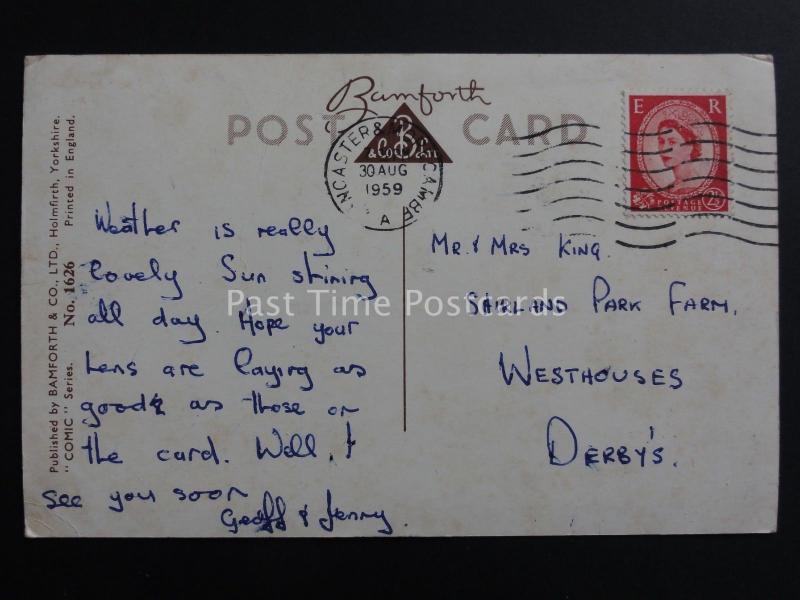 Bamforth
POST CARD
& CO LTD
LANCASTER & MORECAMBE
30 AUG
1959
A
E R
POSTAGE
REVENUE
2½
Published by BAMFORTH & CO., LTD., Holmfirth, Yorkshire.
"COMIC" Series. No. 1626 Printed in England.
Weather is really
lovely Sun shining
all day. Hope your
hens are laying as
good as those on
the card. Well, I
see you soon
Geoff & Jenny.
Mr. & Mrs King
Shirland Park Farm.
Westhouses
Derby's.
Past Time Postcards